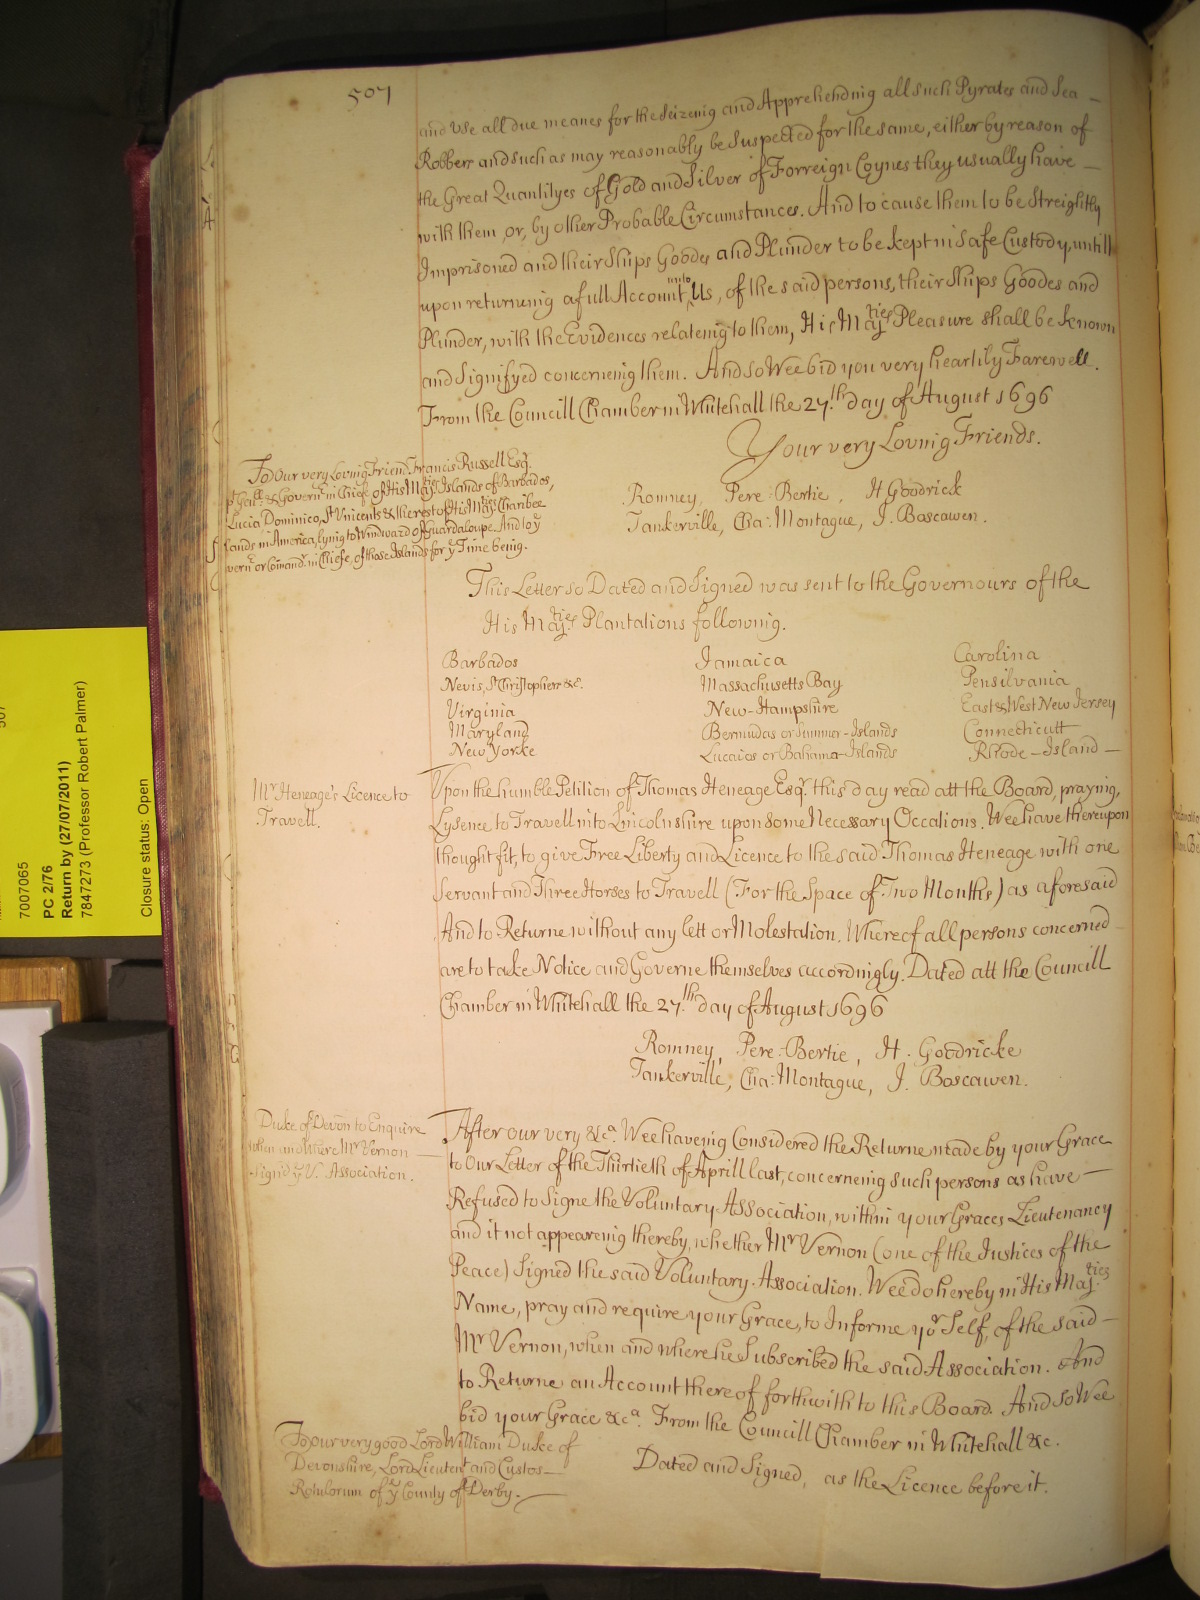 507
and Use all due meanes for the Seizenig and Apprehending all such Pyrates and Sea —
Robbers and such as may reasonably be Suspected for the same, either by reason of
the Great Quantityes of Gold and Silver of Forreign Coynes they usually have —
with them or, by other Probable Circumstances. And to cause them to be Streightly
Imprisoned and their Ships Goodes and Plunder to be kept in Safe Custody, untill
upon returneing a full Account unto Us, of the said persons, their Ships Goodes and
Plunder, with the Evidences relateing to them, His Maj.ties Pleasure shall be known
and Signifyed concerneing them. And so Wee bid you very heartily Farewell.
From the Councill Chamber in Whitehall the 27.th day of August 1696
Your very Loving Friends.
Romney, Pere: Bertie, H Goodrick
Tankerville, Cha: Montague, J. Boscawen.
To Our very Loving Friend Francis Russell Esq.r
Govern.r in Chief of His Maj.ties Islands of Barbados,
Lucia Dominico, S.t Vincents & the rest of His Maj.ties Charibee
lands in America, lying to Windward of Guardaloupe. And to y.e
vern.r or Comand.r in Chiefe, of those Islands for y.e Time being.
This Letter so Dated and Signed was sent to the Governours of the
His Maj.ties Plantations following.
Barbados Jamaica Carolina
Nevis, S.t Christophers &c. Massachusetts Bay Pensilvania
Virginia New-Hampshire East & West New Jersey
Maryland Bermudas or Summer-Islands Connecticutt
New Yorke Lucaios or Bahama-Islands Rhode-Island —
Mr Heneage's Licence to
Travell.
Upon the humble Petition of Thomas Heneage Esq.r this day read att the Board, praying,
Lysence to Travell into Lincolnshire upon some Necessary Occations. Wee have thereupon
thought fit, to give Free Liberty and Licence to the said Thomas Heneage with one
Servant and Three Horses to Travell (For the Space of Two Months) as aforesaid
And to Returne without any lett or Molestation. Whereof all persons concerned —
are to take Notice and Governe themselves accordingly. Dated att the Councill
Chamber in Whitehall the 27.th day of August 1696
Romney, Pere: Bertie, H. Goodricke
Tankerville, Cha: Montague, J. Boscawen.
Duke of Devon to Enquire
when and where Mr Vernon —
Signd y.e V. Association.
After our very &c.a Wee haveing Considered the Returne made by your Grace
to Our Letter of the Thirtieth of Aprill last, concerneing such persons as have —
Refused to Signe the Voluntary Association, within your Graces Lieutenancy
and it not appeareing thereby, whether Mr Vernon (one of the Justices of the
Peace) Signed the said Voluntary Association. Wee do hereby in His Maj.ties
Name, pray and require your Grace, to Informe yo.r Self, of the said —
Mr Vernon, when and where he Subscribed the said Association. And
to Returne an Account thereof forthwith to this Board. And so Wee
bid your Grace &c.a From the Councill Chamber in Whitehall &c.
To our very good Lord William Duke of
Devonshire, Lord Lieutent and Custos —
Rotulorum of y.e County of Derby.
Dated and Signed, as the Licence before it.
507
7007065
PC 2/76
Return by (27/07/2011)
7847273 (Professor Robert Palmer)
Closure status: Open